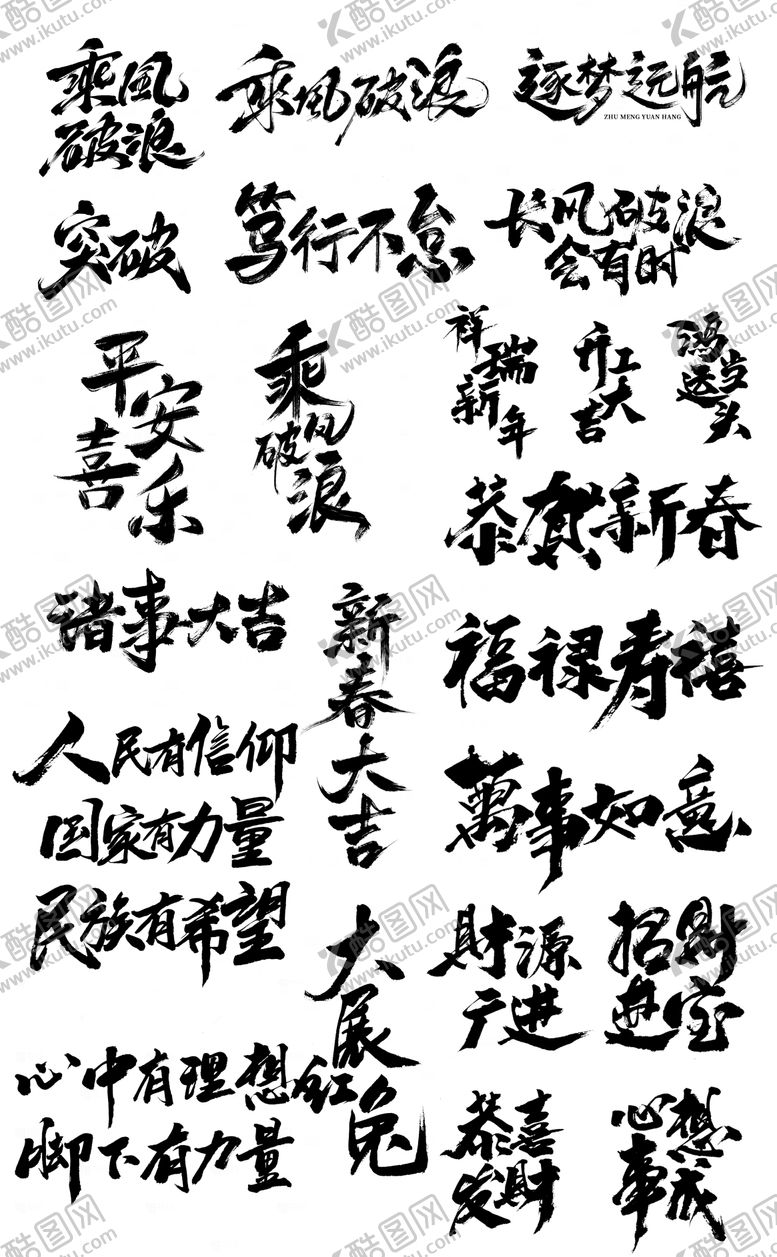 乘風
破浪
乘風破浪
逐梦远航
ZHU MENG YUAN HANG
突破
笃行不怠
长风破浪
会有时
平安
喜乐
乘风
破浪
祥瑞
新年
开工
大吉
鸿运
当头
恭賀新春
诸事大吉
新春大吉
福禄寿禧
人民有信仰
国家有力量
民族有希望
萬事如意
大展红兔
財源
广进
招財
进宝
心中有理想
脚下有力量
恭喜
发財
心想
事成
酷图网
www.ikutu.com